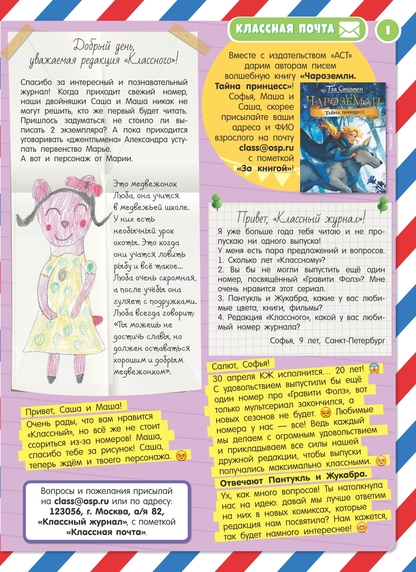 КЛАССНАЯ ПОЧТА
1
Добрый день,
уважаемая редакция «Классного»!
Спасибо за интересный и познавательный
журнал! Когда приходит свежий номер,
наши двойняшки Саша и Маша никак не
могут решить, кто же первый будет читать.
Пришлось задуматься: не стоило ли вы-
писать 2 экземпляра? А пока приходится
уговаривать «джентльмена» Александра усту-
пать первенство Марье.
А вот и персонаж от Марии.
Это медвежонок
Люба, она учится
в медвежьей школе.
У них есть
необычный урок
охоты. Это когда
они учатся ловить
рыбу и всё такое...
Люба очень скромная,
а после учёбы она
гуляет с подружками.
Люба всегда говорит:
«Ты можешь не
достичь славы, но
должен оставаться
хорошим и добрым
медвежонком».
Привет, Саша и Маша!
Очень рады, что вам нравится
«Классный», но всё же не стоит
ссориться из-за номеров! Маша,
спасибо тебе за рисунок! Саша,
теперь ждём и твоего персонажа.
Вопросы и пожелания присылай
на class@osp.ru или по адресу:
123056, г. Москва, а/я 82,
«Классный журнал», с пометкой
«Классная почта».
Вместе с издательством «АСТ»
дарим авторам писем
волшебную книгу «Чароземли.
Тайна принцесс»!
Софья, Маша и
Саша, скорее
присылайте ваши
адреса и ФИО
взрослого на почту
class@osp.ru
с пометкой
«За книгой»!
Гэв Стимпен
ЧАРОЗЕМЛИ
ТАЙНА ПРИНЦЕСС
Привет, «Классный журнал»!
Я уже больше года тебя читаю и не про-
пускаю ни одного выпуска!
У меня есть пара предложений и вопросов.
1. Сколько лет «Классному»?
2. Вы бы не могли выпустить ещё один
номер, посвящённый «Гравити Фолз»? Мне
очень нравится этот сериал.
3. Пантукль и Жукабра, какие у вас люби-
мые цвета, книги, фильмы?
4. Редакция «Классного», какой у вас люби-
мый номер журнала?
Софья, 9 лет, Санкт-Петербург
Салют, Софья!
30 апреля КЖ исполнится... 20 лет!
С удовольствием выпустили бы ещё
один номер про «Гравити Фолз», вот
только мультсериал закончился, а
новых сезонов не будет Любимые
номера у нас — все! Ведь каждый
мы делаем с огромным удовольствием
и прикладываем все силы нашей
дружной редакции, чтобы выпуски
получались максимально классными.
Отвечают Пантукль и Жукабра.
Ух, как много вопросов! Ты натолкнула
нас на идею: давай мы лучше ответим
на них в новых комиксах, которые
редакция нам посвятила? Нам кажется,
так будет намного интереснее!